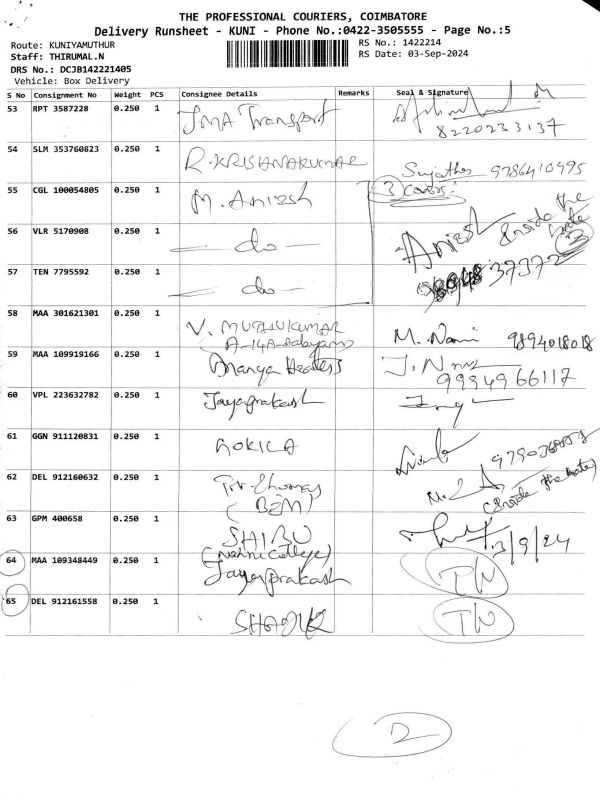 THE PROFESSIONAL COURIERS, COIMBATORE
Delivery Runsheet - KUNI - Phone No.:0422-3505555 - Page No.:5
Route: KUNIYAMUTHUR
RS No.: 1422214
Staff: THIRUMAL.N
RS Date: 03-Sep-2024
DRS No.: DCJB142221405
Vehicle: Box Delivery
S No Consignment No Weight PCS Consignee Details Remarks Seal & Signature
53 RPT 3587228 0.250 1 JMA Transport
8220233137
54 SLM 353760823 0.250 1 R.KRISHNAKUMAR Sujatha 9786410995
55 CGL 100054805 0.250 1 M. Anish 3 Covers
56 VLR 5170908 0.250 1 — do — Anish Inside the gate 3
57 TEN 7795592 0.250 1 — do — 37372
58 MAA 301621301 0.250 1 V. MUTHUKUMAR M. Nani 9894018018
A-14A
59 MAA 109919166 0.250 1 Ananya Heaters
9994966117
60 VPL 223632782 0.250 1 Jayaprakash
61 GGN 911120831 0.250 1 GOKILA
62 DEL 912160632 0.250 1
(BZM) (Inside the gate)
63 GPM 400658 0.250 1 SHIBU 3/9/24
(Nehru College)
64 MAA 109348449 0.250 1 Jayaprakash IN
65 DEL 912161558 0.250 1 IN
2